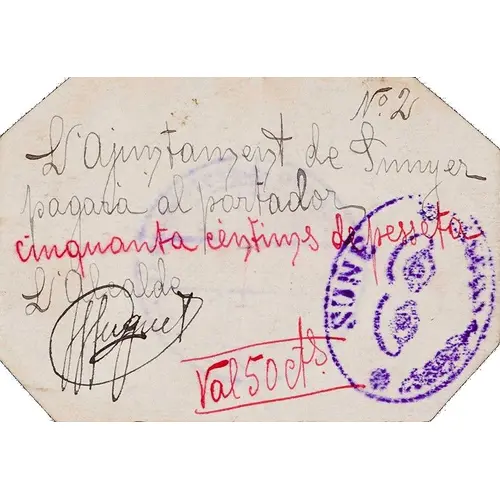 Nº 2
L'Ajuntament de Sunyer
pagarà al portador
cinquanta cèntims de pesseta
L'Alcalde
Huguet
Val 50 cts.
SUNYE